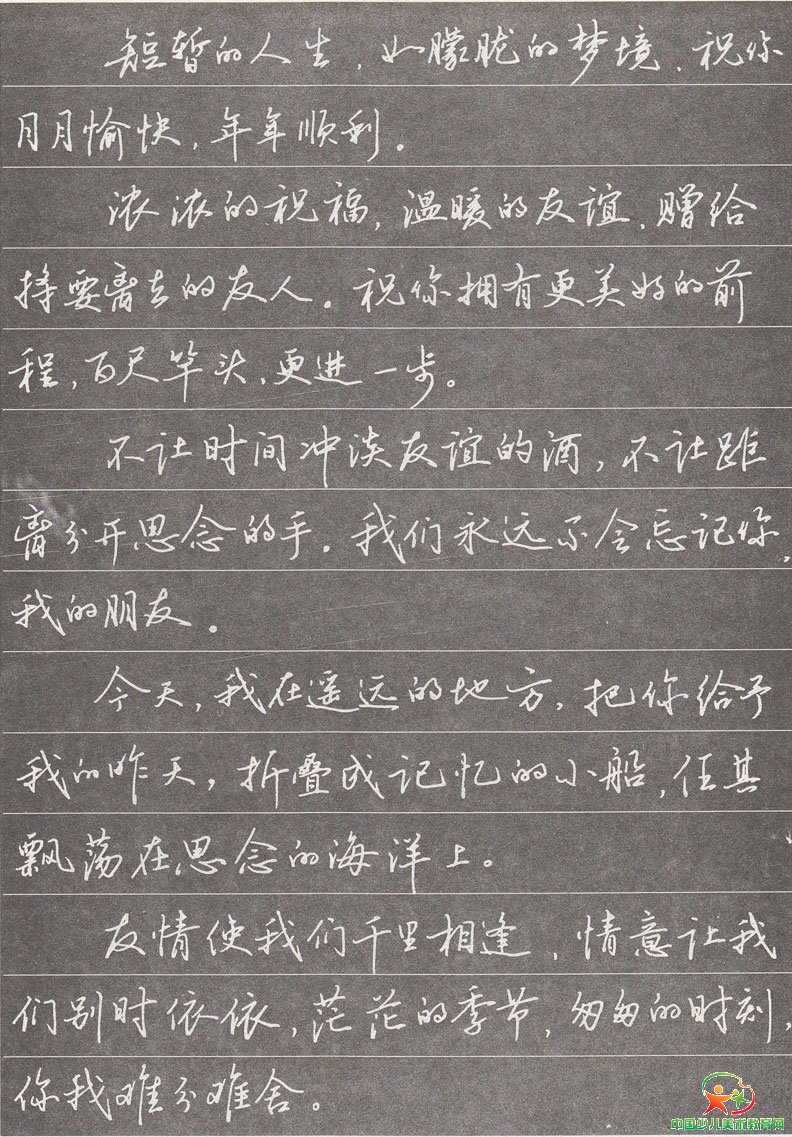 短暂的人生，如朦胧的梦境，祝你
月月愉快，年年顺利。
浓浓的祝福，温暖的友谊，赠给
将要离去的友人。祝你拥有更美好的前
程，百尺竿头，更进一步。
不让时间冲淡友谊的酒，不让距
离分开思念的手。我们永远不会忘记你，
我的朋友。
今天，我在遥远的地方，把你给予
我的昨天，折叠成记忆的小船，任其
飘荡在思念的海洋上。
友情使我们千里相逢，情意让我
们别时依依，茫茫的季节，匆匆的时刻，
你我难分难舍。
中国少儿美术教育网